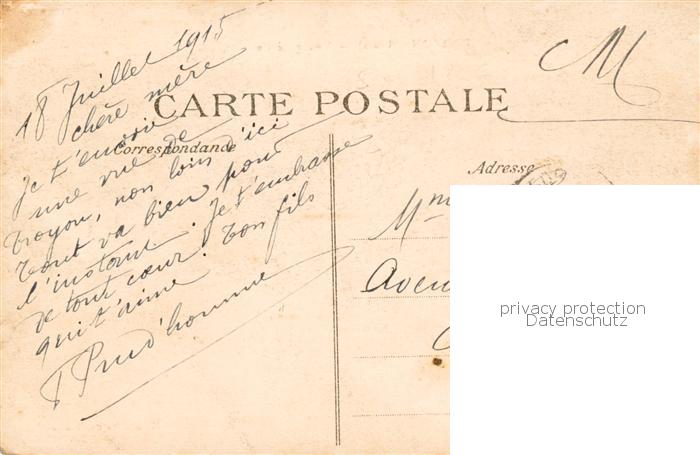 18 Juillet 1915
chère mère
CM
CARTE POSTALE
Correspondance
Je t'envoie
une vue de
Troyon, non loin d'ici
tout va bien pour
l'instant. Je t'embrasse
de tout cœur. ton fils
qui t'aime
Prud'homme
Adresse
Mm
Aven
privacy protection
Datenschutz